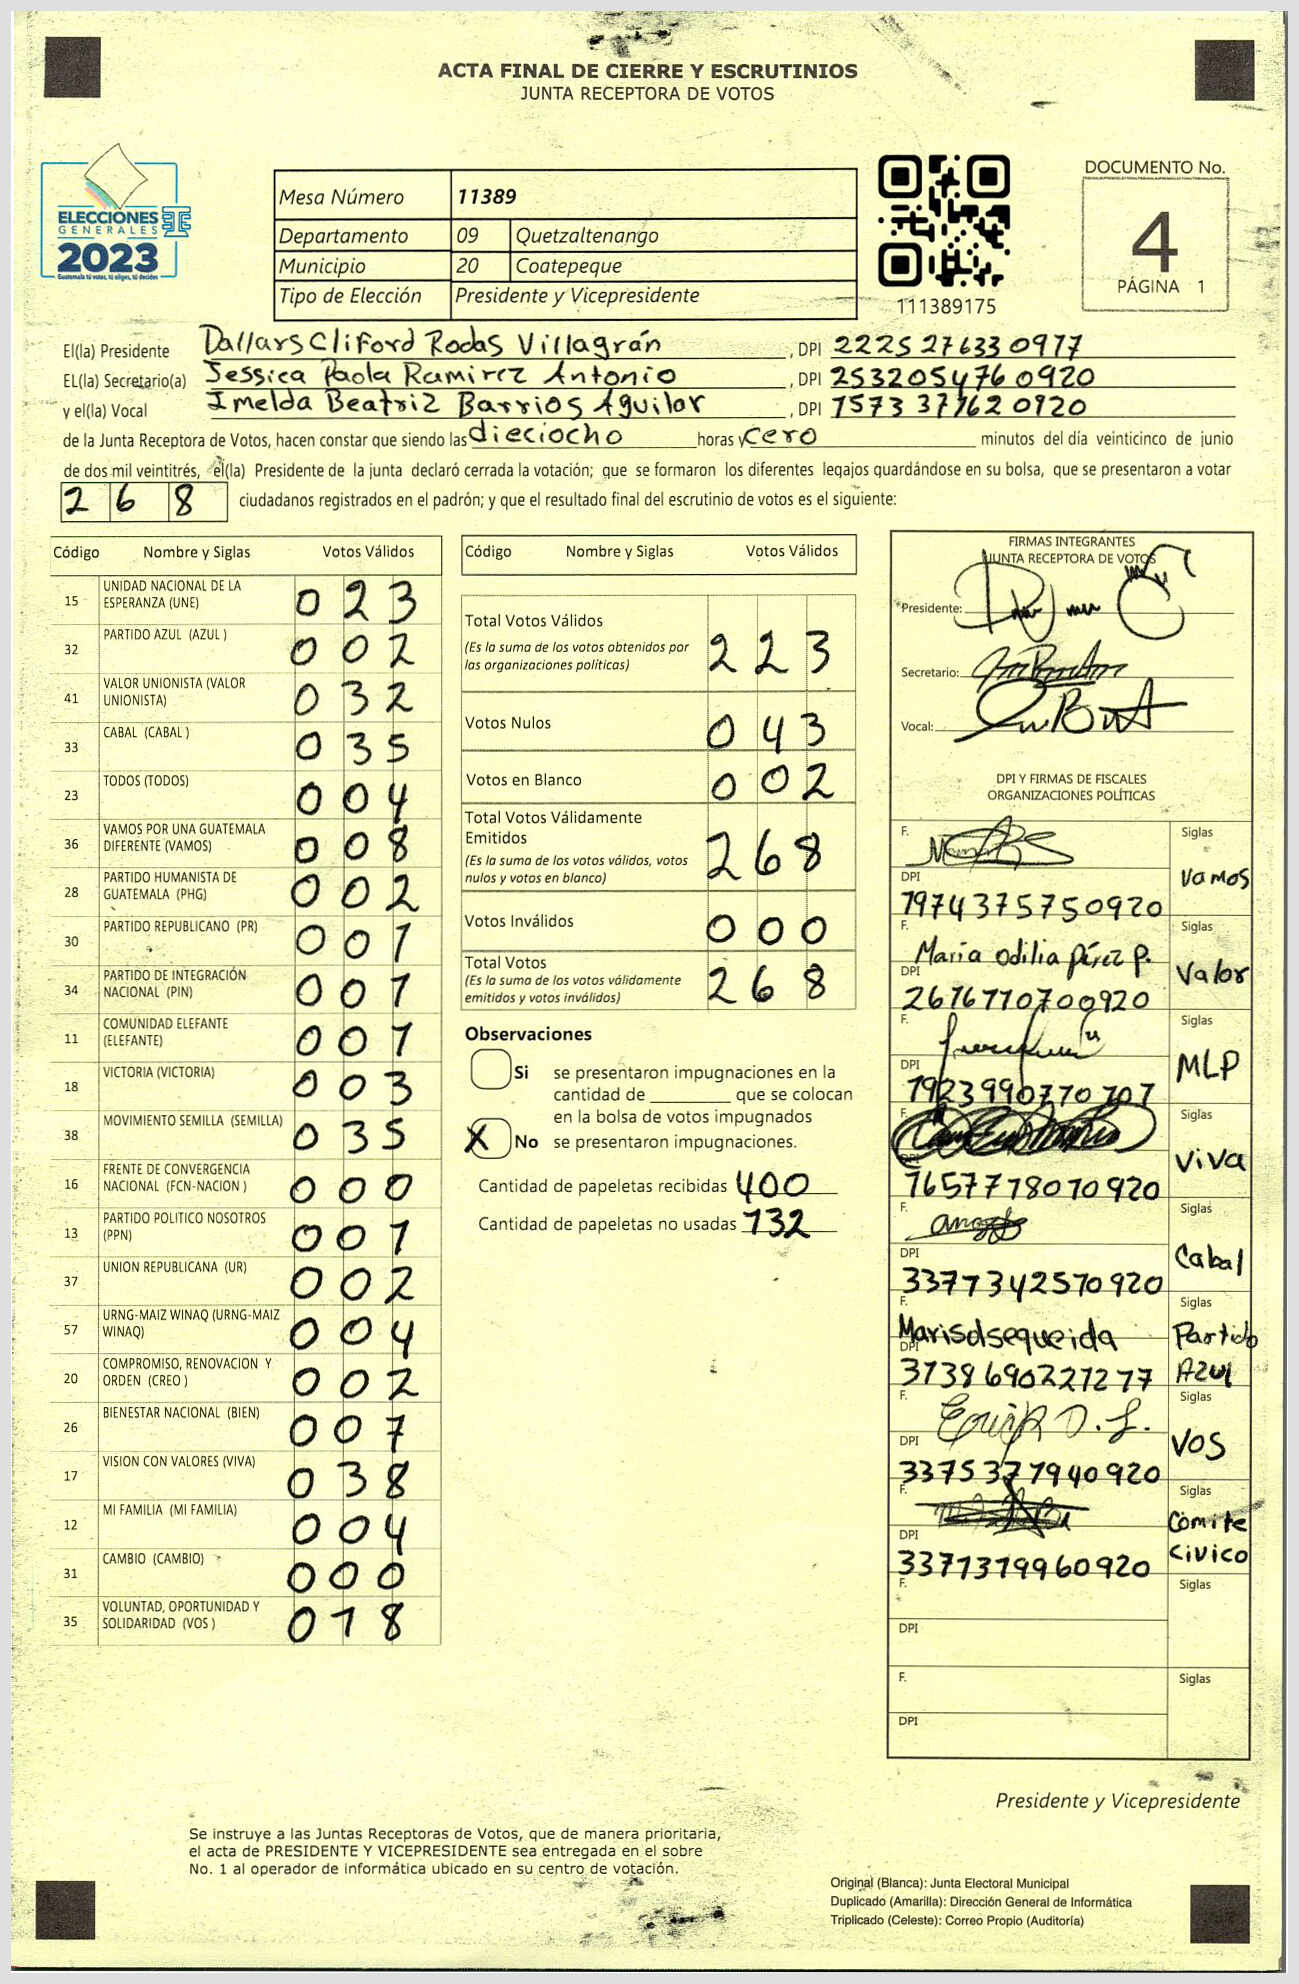 ACTA FINAL DE CIERRE Y ESCRUTINIOS
JUNTA RECEPTORA DE VOTOS
ELECCIONES
GENERALES
2023
Guatemala tú votas, tú eliges, tú decides
Mesa Número 11389
Departamento 09 Quetzaltenango
Municipio 20 Coatepeque
Tipo de Elección Presidente y Vicepresidente
111389175
DOCUMENTO No.
4
PÁGINA 1
El(la) Presidente Dallars Cliford Rodas Villagrán, DPI 2225 27633 0977
EL(la) Secretario(a) Jessica Paola Ramirez Antonio, DPI 253205476 0920
y el(la) Vocal Imelda Beatriz Barrios Aguilar, DPI 1573 37762 0920
de la Junta Receptora de Votos, hacen constar que siendo las dieciocho horas y cero minutos del día veinticinco de junio
de dos mil veintitrés, el(la) Presidente de la junta declaró cerrada la votación; que se formaron los diferentes legajos quardándose en su bolsa, que se presentaron a votar
268 ciudadanos registrados en el padrón; y que el resultado final del escrutinio de votos es el siguiente:
Código Nombre y Siglas Votos Válidos
15 UNIDAD NACIONAL DE LA ESPERANZA (UNE) 023
32 PARTIDO AZUL (AZUL ) 002
41 VALOR UNIONISTA (VALOR UNIONISTA) 032
33 CABAL (CABAL ) 035
23 TODOS (TODOS) 004
36 VAMOS POR UNA GUATEMALA DIFERENTE (VAMOS) 008
28 PARTIDO HUMANISTA DE GUATEMALA (PHG) 002
30 PARTIDO REPUBLICANO (PR) 001
34 PARTIDO DE INTEGRACIÓN NACIONAL (PIN) 001
11 COMUNIDAD ELEFANTE (ELEFANTE) 001
18 VICTORIA (VICTORIA) 003
38 MOVIMIENTO SEMILLA (SEMILLA) 035
16 FRENTE DE CONVERGENCIA NACIONAL (FCN-NACION ) 000
13 PARTIDO POLITICO NOSOTROS (PPN) 001
37 UNION REPUBLICANA (UR) 002
57 URNG-MAIZ WINAQ (URNG-MAIZ WINAQ) 004
20 COMPROMISO, RENOVACION Y ORDEN (CREO ) 002
26 BIENESTAR NACIONAL (BIEN) 007
17 VISION CON VALORES (VIVA) 038
12 MI FAMILIA (MI FAMILIA) 004
31 CAMBIO (CAMBIO) 000
35 VOLUNTAD, OPORTUNIDAD Y SOLIDARIDAD (VOS ) 018
Código Nombre y Siglas Votos Válidos
Total Votos Válidos 223
(Es la suma de los votos obtenidos por las organizaciones politicas)
Votos Nulos 043
Votos en Blanco 002
Total Votos Válidamente Emitidos 268
(Es la suma de los votos válidos, votos nulos y votos en blanco)
Votos Inválidos 000
Total Votos 268
(Es la suma de los votos válidamente emitidos y votos inválidos)
Observaciones
Si se presentaron impugnaciones en la
cantidad de que se colocan
en la bolsa de votos impugnados
X No se presentaron impugnaciones.
Cantidad de papeletas recibidas 400
Cantidad de papeletas no usadas 132
FIRMAS INTEGRANTES
JUNTA RECEPTORA DE VOTOS
Presidente:
Secretario:
Vocal:
DPI Y FIRMAS DE FISCALES
ORGANIZACIONES POLÍTICAS
F. Siglas
DPI Vamos
1974375750920
F. María Odilia Pérez P. Siglas
DPI Valor
2676770700920
F. Siglas
DPI MLP
1923990770707
F. Siglas
DPI Viva
1657778010920
F. Siglas
DPI Cabal
3377342570920
F. Marisol sequeida Siglas
DPI Partido Azul
3138690221277
F. Siglas
DPI VOS
3375377940920
F. Siglas
DPI Comite Civico
3371379960920
F. Siglas
DPI
F. Siglas
DPI
Presidente y Vicepresidente
Se instruye a las Juntas Receptoras de Votos, que de manera prioritaria,
el acta de PRESIDENTE Y VICEPRESIDENTE sea entregada en el sobre
No. 1 al operador de informática ubicado en su centro de votación.
Original (Blanca): Junta Electoral Municipal
Duplicado (Amarilla): Dirección General de Informática
Triplicado (Celeste): Correo Propio (Auditoría)